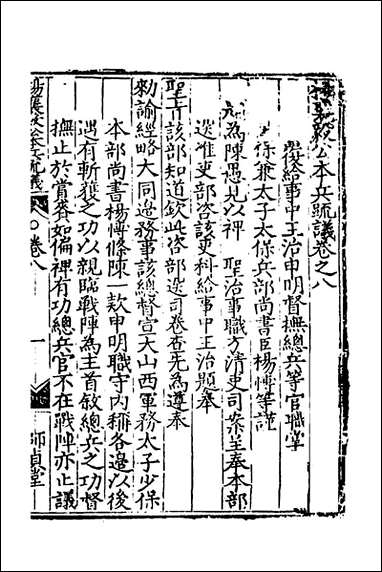 楊襄毅公本兵疏議卷之八
覆給事中王治申明督撫總兵等官職掌
少保兼太子太保兵部尚書臣楊博等謹
題為陳愚見以裨 聖治事職方清吏司案呈奉本部
送准吏部咨該吏科給事中王治題奉
聖旨該部知道欽此咨部送司卷查先為遵奉
勑諭經略大同邊務事該總督宣大山西軍務太子少保
本部尚書楊博條陳一款申明職守內稱各邊以後
遇有斬獲之功以親臨戰陣為主首敘總兵之功督
撫止於賞賚如偏裨有功總兵官不在戰陣亦止議
楊襄毅公本兵疏議 卷八 一 師貞堂